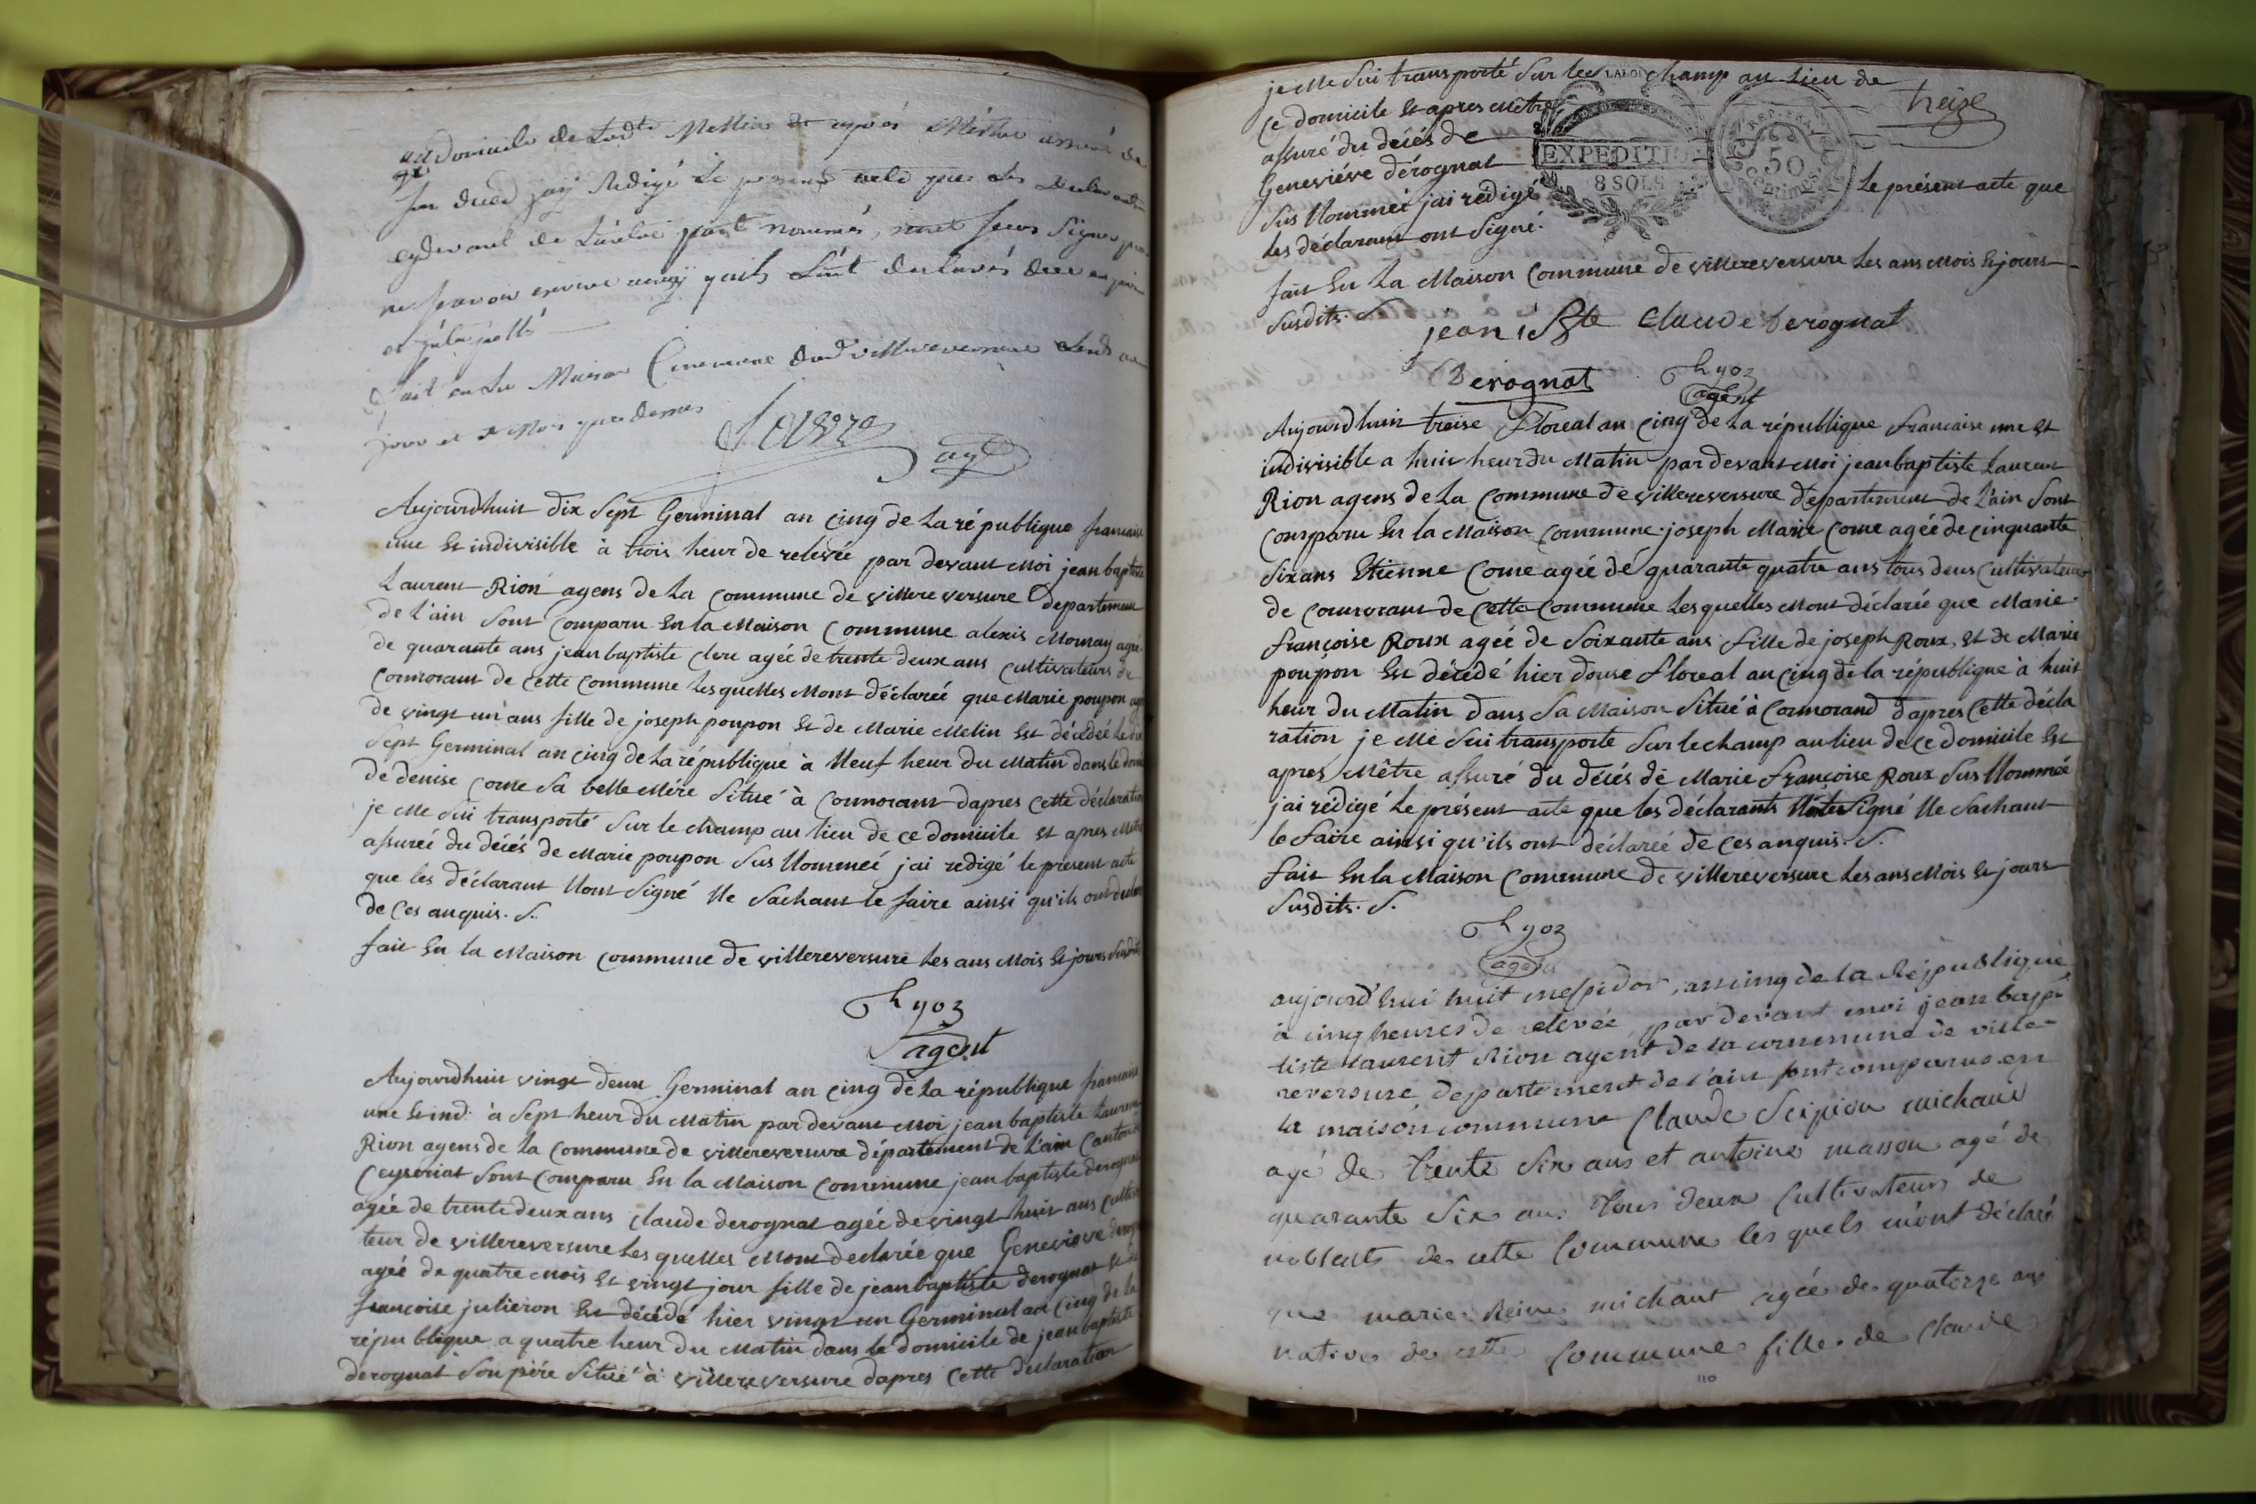 au Domicile de Ladte Mellin et après M'être assuré de
son decd jay Redigé Le present acte que les Declarants
cydevant de Lareloi part nommés, n'ont sceus signer pour
ne scavoir ecrire ainsy quils L'ont declarés de ce enquis
et Jnterpellé
Fait en La Maison Commune dud villereversure Lesd an
jour et Mois que dessus
agt
Aujourdhuit dix Sept Germinal an Cinq de La république francaise
une Et indivisible à trois heur de relevée par devant Moi jean baptiste
Laurent Rion agens de La Commune de villereversure Departement
de L'ain Sont Comparu En la Maison Commune alexis Mornay agée
de quarante ans jean baptiste Clere agée de trente deux ans Cultivateurs de
Cormorant de Cette Commune Lesquelles Mont déclareé que Marie poupon agée
de vingt un ans fille de joseph poupon Et de Marie Melin Est décédeé Le dix
Sept Germinal an Cinq de La république à Neuf heur du Matin dans le domi
de denise Come Sa belle Mére Situé à Cormorant dapres Cette déclaration
je Me Sui transporté Sur le champ au lieu de Ce domicile Et apres Mêtre
assureé du déiés de Marie poupon Sus Nommeé jai redigé le present acte
que les déclarant Nont Signé Ne Sachant le faire ainsi qu'ils ont declaré
de Ces anquis. S.
fait En la Maison Commune de villereversure Les ans Mois Et jours Susdit
Ryoz
agent
Aujourdhuit vingt deux Germinal an Cinq de La république francaise
une Et ind. à Sept heur du Matin pardevant Moi jean baptiste Laurent
Rion agens de La Commune de villereversure département de L'ain Canton de
Ceyseriat Sont Comparu En la Maison Commune jean baptiste derognat
agée de trente deux ans Claude derognat agée de vingt huit ans Cultiva
teur de villereversure Lesquelles Mont declarée que Genevieve derognat
ageé de quatre Mois Et vingt jour fille de jean baptiste derognat Et de
françoise julieron Est décédé hier vingt un Germinal an Cinq de la
république a quatre heur du Matin dans le domicile de jean baptiste
derognat Son pére Situé à villereversure dapres Cette déclaration
je Me Sui transporté Sur le LA LOI champ au Lieu de
treize
Ce domicile Et apres Mêtre
assuré du déiés de
Geneviéve dérognat
EXPEDITION
8 SOLS
REP. FRA.
50
Centimes
Sus Nommeé jai rédigé le présent acte que
les déclarant ont Signé.
fait En La Maison Commune de villereversure Les ans Mois Et jours
Susdits. S.
jean Bte Claude Derognat
Derognat
Ryoz
agent
Aujourdhuit treise Floreal an Cinq de La république francaise une Et
indivisible a huit heur du Matin par devant Moi jean baptiste Laurent
Rion agens de La Commune de villereversure Departement de L'ain Sont
Comparu En la Maison Commune joseph Marie Come agée de Cinquante
Six ans Etienne Come agée dé quarante quatre ans tous deux Cultivateurs
de Cormorant de Cette Commune Lesquelles Mont déclarée que Marie
françoise Roux ageé de Soixante ans fille de joseph Roux, Et de Marie
poupon Est décédé hier douse floreal an Cinq de la république à huit
heur du Matin dans Sa Maison Situé à Cormorand dapres Cette décla
ration je Me Sui transporté Sur le champ au lieu de Ce domicile Est
apres Mêtre assuré du déiés dé Marie françoise Roux Sus Nommeé
jai rédigé Le présent acte que les déclarants Signé Ne Sachant
le faire ainsi qu'ils ont déclareé de Ces anquis. S.
fait En la Maison Commune de villereversure Les ans Mois Et jours
Susdits. S.
Ryoz
agent
aujourd'hui huit messidor, an cinq de la République
à cinq heures de relevée, par devant moi jean bapt
tiste laurent Rion agent de la commune de ville-
reversure, departement de l'ain sont comparus en
la maison commune Claude Scipion michaud
agé de trente six ans et antoine masson agé de
quarante six ans tous deux Cultivateurs de
noblens de cette commune les quels m'ont déclaré
que marie Reine michaut agée de quatorze ans
native de cette Commune fille de Claude
110